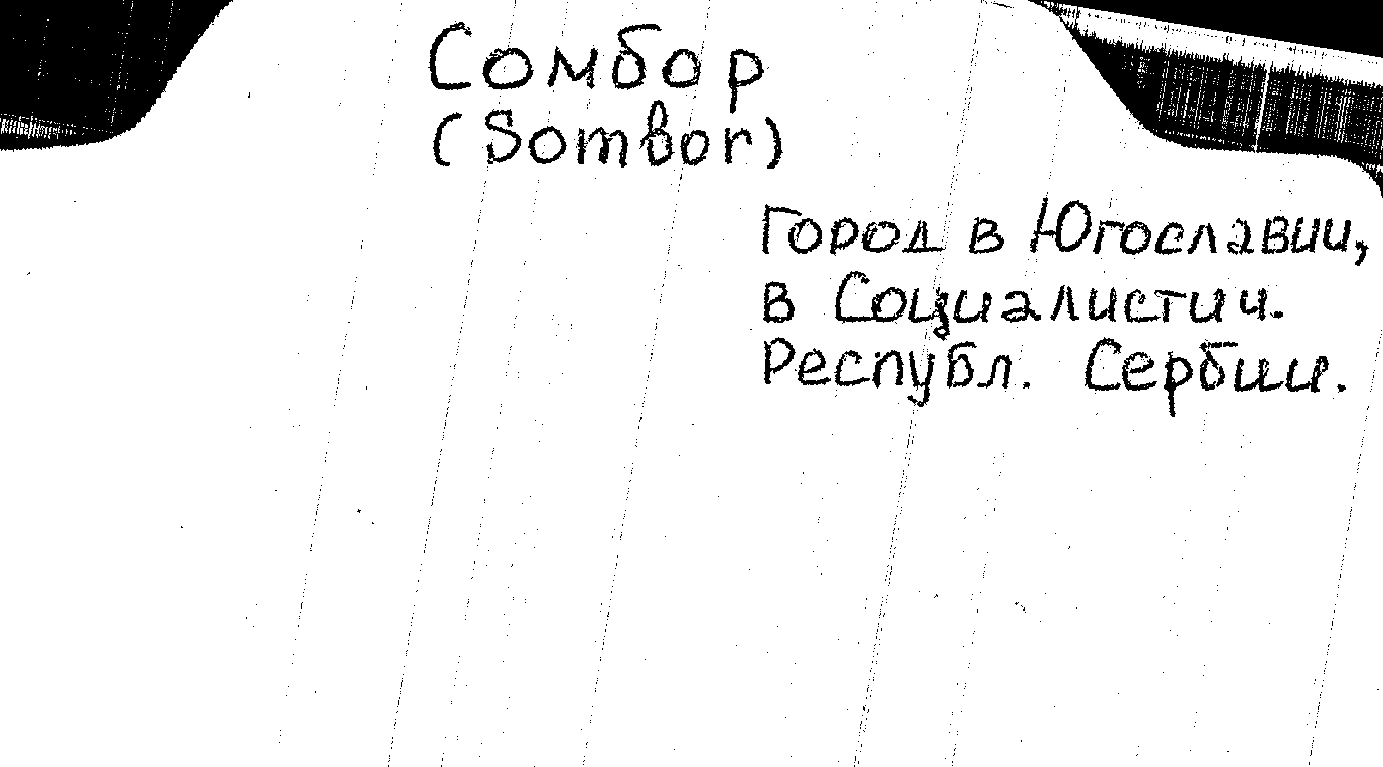 Сомбор
(Sombor)
Город в Югославии,
в Социалистич.
Республ. Сербии.